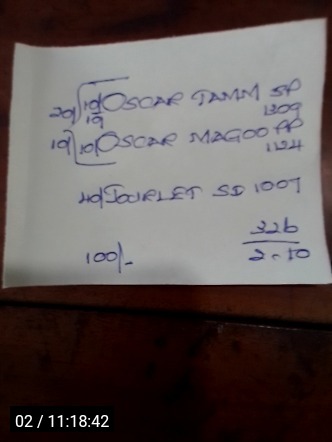 20/[10/ OSCAR TAMM SP
10 1309
10/[10/ OSCAR MAGOO PP
1124
40/ JOURLET SD 1007
326
100/- 2-10
02 / 11:18:42